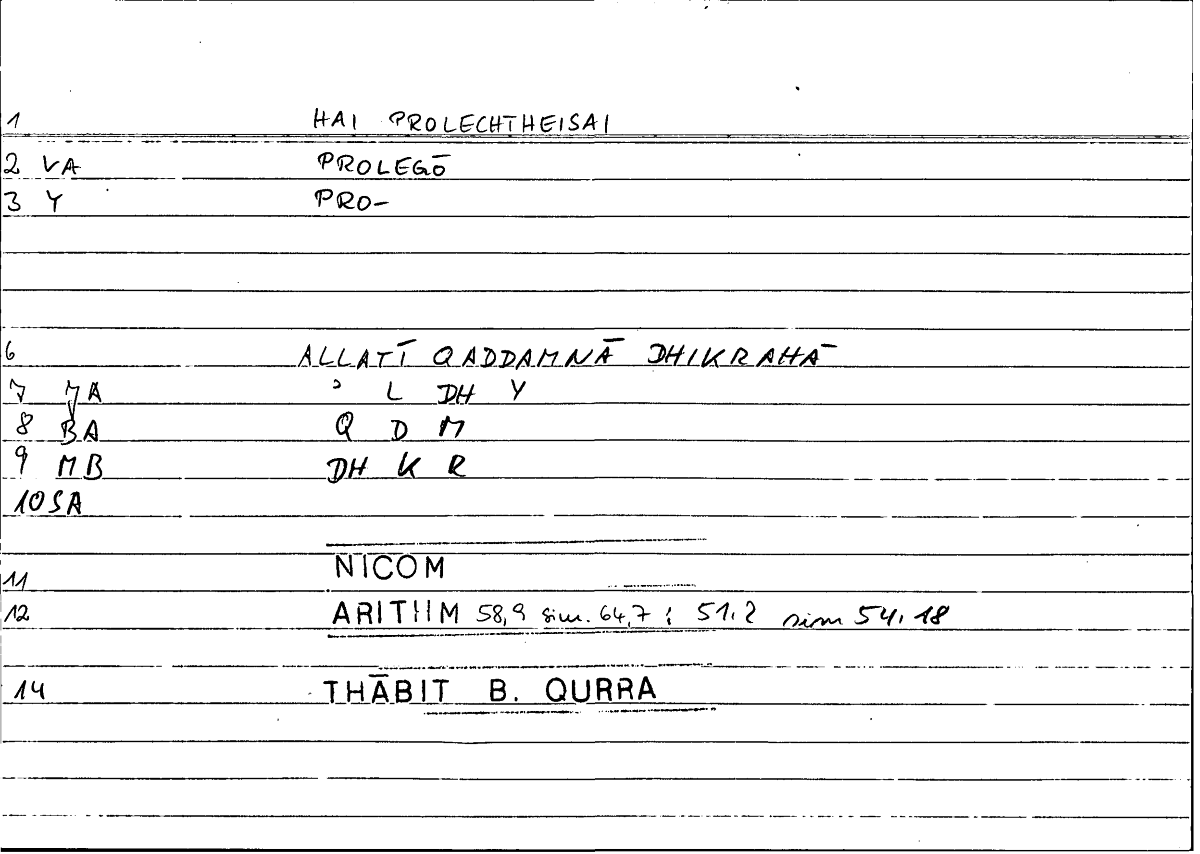 1 HAI PROLECHTHEISAI
2 VA PROLEGŌ
3 Y PRO-
6 ALLATĪ QADDAMNĀ DHIKRAHĀ
7 MA ʾ L DH Y
8 BA Q D M
9 MB DH K R
10 SA
11 NICOM
12 ARITHM 58,9 sim. 64,7 ; 51.2 sim 54.18
14 THĀBIT B. QURRA